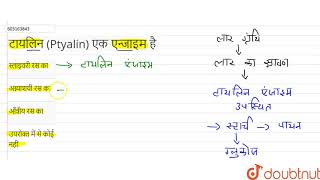 603163843
टायलिन (Ptyalin) एक एन्जाइम है
स्लाइवरी रस का → टायलिन एंजाइम
आमाशयी रस का
आँत्रीय रस का
उपरोक्त में से कोई
नहीं
लार ग्रंथि
↓
लार का स्रावण
↓
टायलिन एंजाइम
उपस्थित
→ स्टार्च → पाचन
↓
ग्लूकोज
doubtnut